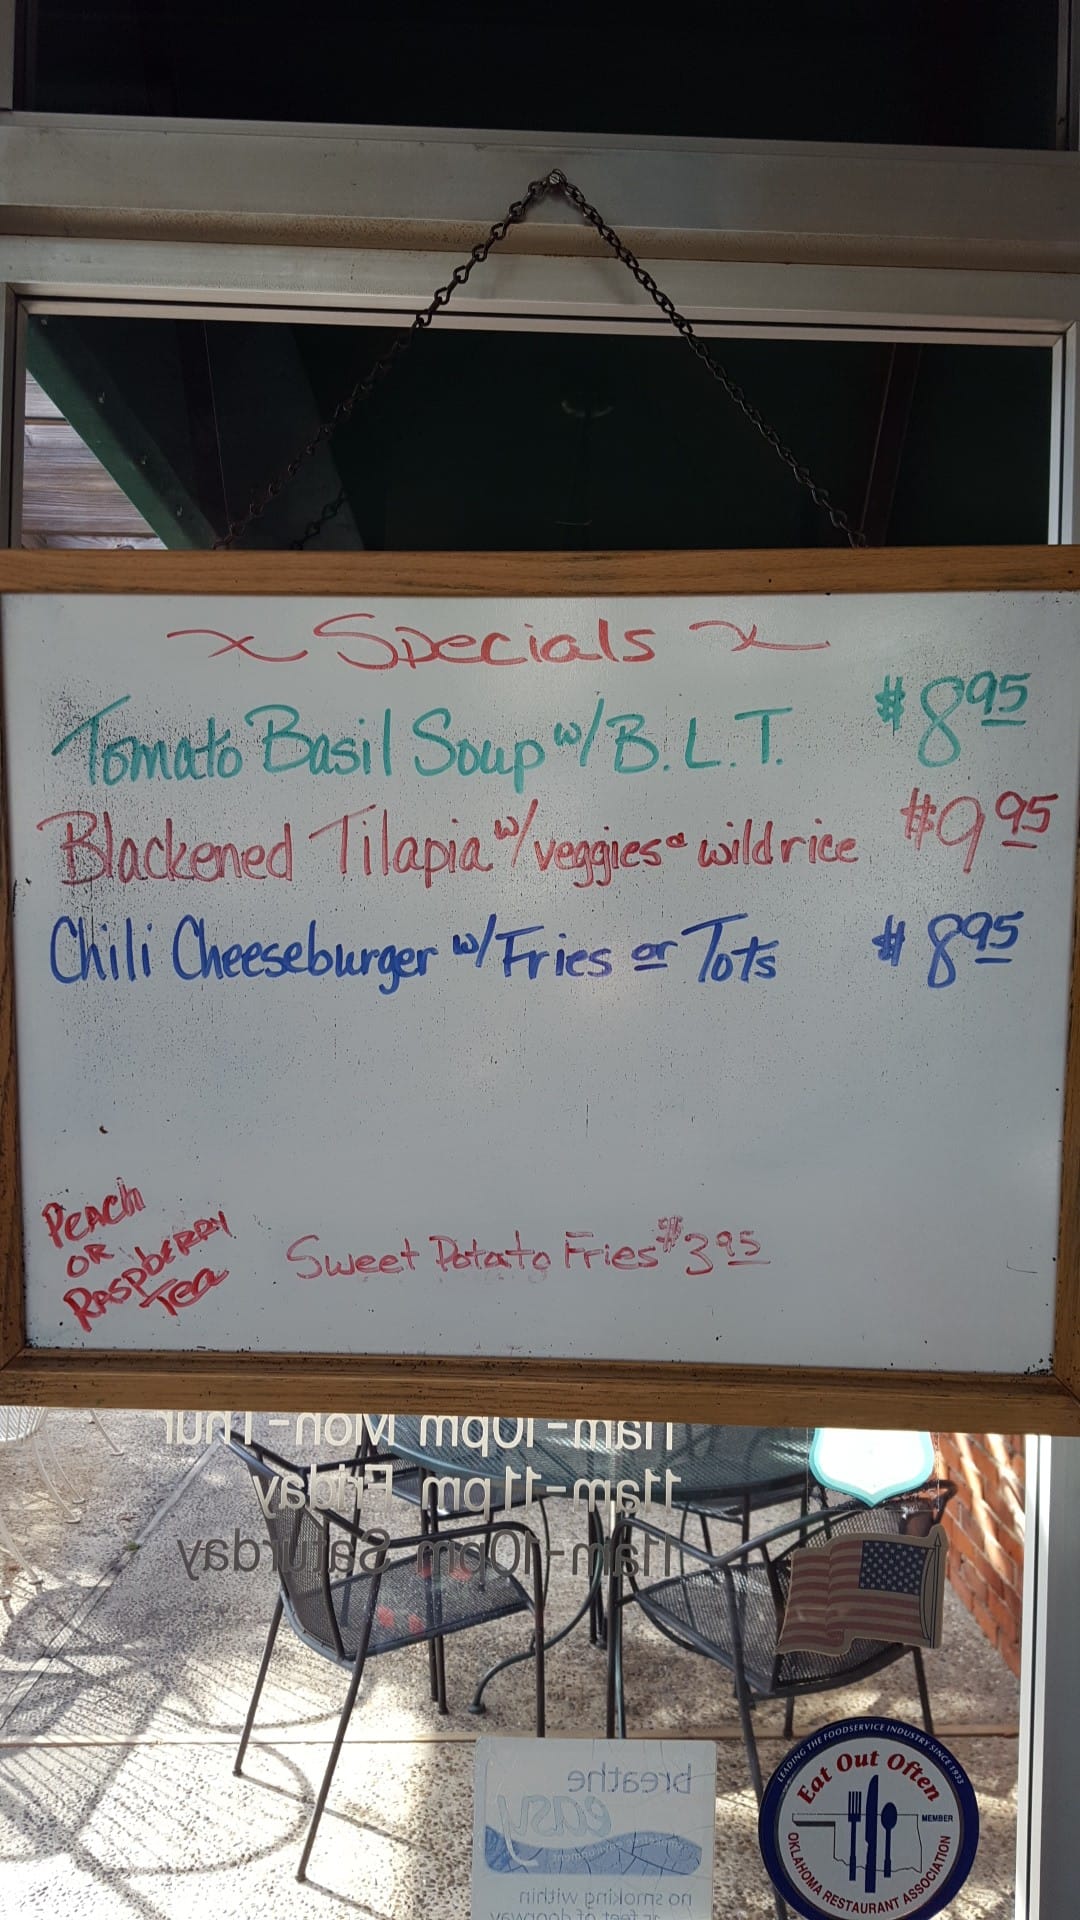 Specials
Tomato Basil Soup w/ B.L.T. $8.95
Blackened Tilapia w/ veggies & wild rice $9.95
Chili Cheeseburger w/ Fries or Tots $8.95
Peach
or
Raspberry
Tea
Sweet Potato Fries $3.95
11am-10pm Mon-Thur
11am-11pm Friday
11am-10pm Saturday
breathe
easy
no smoking within
feet of doorway
LEADING THE FOODSERVICE INDUSTRY SINCE 1933
Eat Out Often
MEMBER
OKLAHOMA RESTAURANT ASSOCIATION